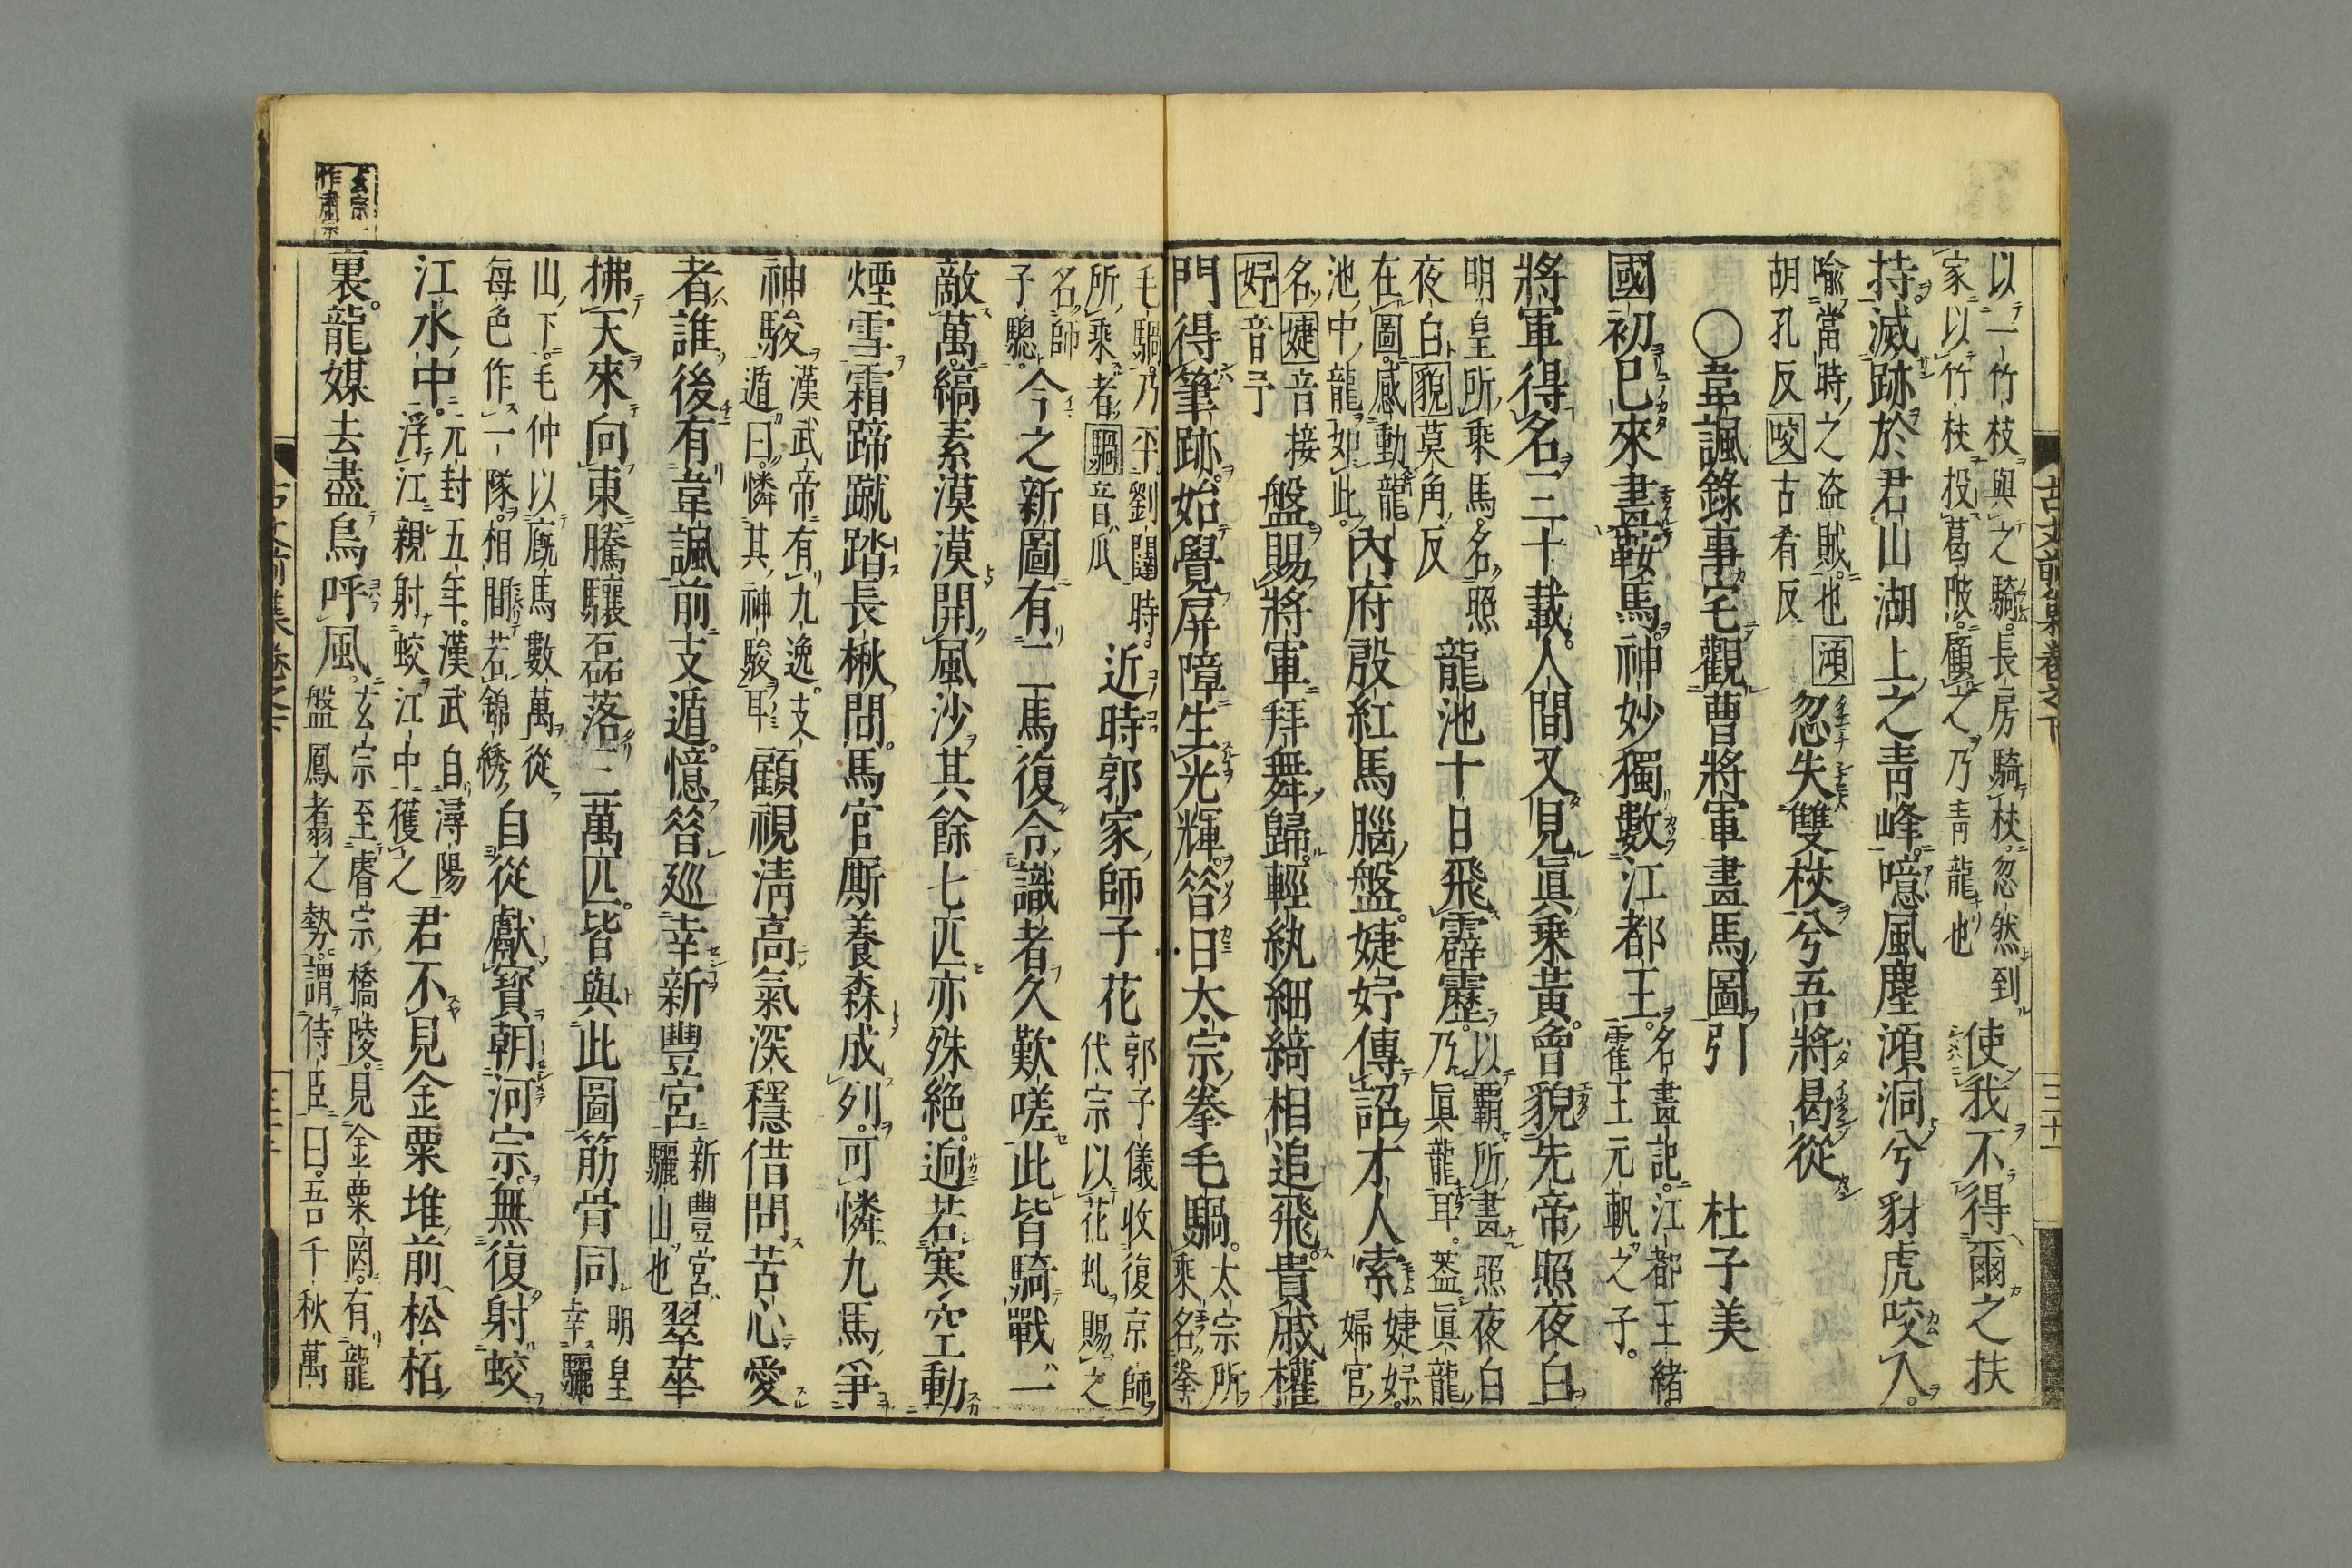 以一竹枝與之騎長房騎枝忽然到
家以竹枝投葛陂顧之乃青龍也
使我不得爾之扶
持滅跡於君山湖上之青峰噫風塵澒洞兮豺虎咬人
喻當時之盗賊也澒
胡孔反咬古肴反
忽失雙杖兮吾將曷從
〇韋諷錄事宅觀曹將軍畫馬圖引　杜子美
國初已來畫鞍馬神妙獨數江都王
名畫記江都王緒
霍王元軌之子。
將軍得名三十載人間又見眞乘黃曾貌先帝照夜白
明皇所乘馬名照
夜白貌莫角反
龍池十日飛霹靂
以覇所畫照夜白
乃眞龍耳蓋眞龍
在圖感動龍
池中龍如此
內府殷紅馬腦盤婕妤傳詔才人索
婕妤
婦官
名婕音接
妤音予
盤賜將軍拜舞歸輕紈細綺相追飛貴戚權
門得筆跡始覺屏障生光輝昔日太宗拳毛騧
太宗所
乘名拳
毛騧乃平劉闥時
所乘者騧音瓜
近時郭家師子花
郭子儀收復京師
代宗以花虬賜之
名師
子驄
今之新圖有二馬復令識者久歎嗟此皆騎戰一
敵萬縞素漠漠開風沙其餘七匹亦殊絶逈若寒空動
煙雪霜蹄蹴踏長楸間馬官厮養森成列可憐九馬爭
神駿
漢武帝有九逸支
遁曰憐其神駿耳
顧視淸高氣深穩借問苦心愛
者誰後有韋諷前支遁憶昔巡幸新豐宮
新豐宮
驪山也
翠華
拂天來向東騰驤磊落三萬匹皆與此圖筋骨同
明皇
幸驪
山下毛仲以廐馬數萬從
每色作一隊相間若錦綉
自從獻寳朝河宗無復射蛟
江水中
元封五年漢武自潯陽
浮江親射蛟江中獲之
君不見金粟堆前松栢
裏龍媒去盡鳥呼風
玄宗至睿宗橋陵見金粟岡有龍
盤鳳翥之勢謂侍臣曰吾千秋萬
玄宗
作肅宗
古文前集卷之下